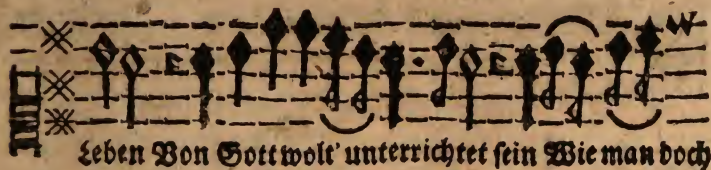 Leben Von Gott wolt' unterrichtet sein Wie man doch